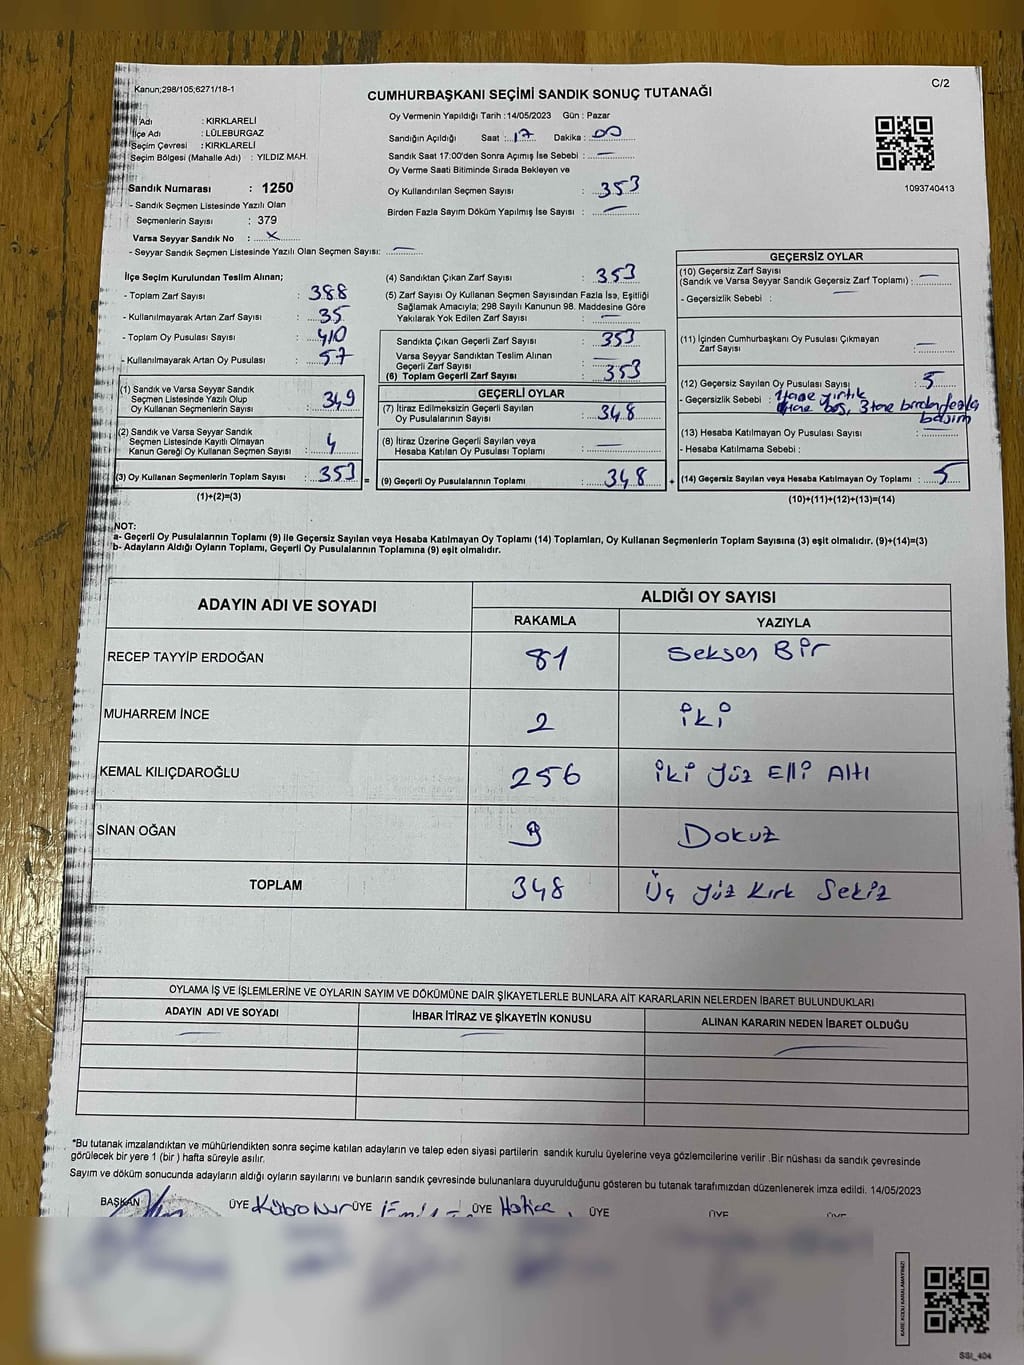 Kanun;298/105;6271/18-1
C/2
CUMHURBAŞKANI SEÇİMİ SANDIK SONUÇ TUTANAĞI
İl Adı : KIRKLARELİ
İlçe Adı : LÜLEBURGAZ
Seçim Çevresi : KIRKLARELİ
Seçim Bölgesi (Mahalle Adı) : YILDIZ MAH.
Sandık Numarası : 1250
- Sandık Seçmen Listesinde Yazılı Olan
Seçmenlerin Sayısı : 379
Varsa Seyyar Sandık No : X
- Seyyar Sandık Seçmen Listesinde Yazılı Olan Seçmen Sayısı: —
Oy Vermenin Yapıldığı Tarih :14/05/2023 Gün : Pazar
Sandığın Açıldığı Saat : 17 Dakika : 00
Sandık Saat 17:00'den Sonra Açımış İse Sebebi : —
Oy Verme Saati Bitiminde Sırada Bekleyen ve
Oy Kullandırılan Seçmen Sayısı : 353
Birden Fazla Sayım Döküm Yapılmış İse Sayısı : —
1093740413
İlçe Seçim Kurulundan Teslim Alınan;
- Toplam Zarf Sayısı : 388
- Kullanılmayarak Artan Zarf Sayısı : 35
- Toplam Oy Pusulası Sayısı : 410
- Kullanılmayarak Artan Oy Pusulası : 57
(1) Sandık ve Varsa Seyyar Sandık
Seçmen Listesinde Yazılı Olup
Oy Kullanan Seçmenlerin Sayısı : 349
(2) Sandık ve Varsa Seyyar Sandık
Seçmen Listesinde Kayıtlı Olmayan
Kanun Gereği Oy Kullanan Seçmen Sayısı : 4
(3) Oy Kullanan Seçmenlerin Toplam Sayısı : 353 =
(1)+(2)=(3)
(4) Sandıktan Çıkan Zarf Sayısı : 353
(5) Zarf Sayısı Oy Kullanan Seçmen Sayısından Fazla İsa, Eşitliği
Sağlamak Amacıyla; 298 Sayılı Kanunun 98. Maddesine Göre
Yakılarak Yok Edilen Zarf Sayısı : —
Sandıkta Çıkan Geçerli Zarf Sayısı : 353
Varsa Seyyar Sandıktan Teslim Alınan
Geçerli Zarf Sayısı : —
(6) Toplam Geçerli Zarf Sayısı : 353
GEÇERLİ OYLAR
(7) İtiraz Edilmeksizin Geçerli Sayılan
Oy Pusulalarının Sayısı : 348
(8) İtiraz Üzerine Geçerli Sayılan veya
Hesaba Katılan Oy Pusulası Toplamı : —
(9) Geçerli Oy Pusulalarının Toplamı : 348 +
GEÇERSİZ OYLAR
(10) Geçersiz Zarf Sayısı
(Sandık ve Varsa Seyyar Sandık Geçersiz Zarf Toplamı) : —
- Geçersizlik Sebebi : —
(11) İçinden Cumhurbaşkanı Oy Pusulası Çıkmayan
Zarf Sayısı : —
(12) Geçersiz Sayılan Oy Pusulası Sayısı : 5
- Geçersizlik Sebebi : 1 tane yırtık
1 tane boş, 3 tane birden fazla
basım
(13) Hesaba Katılmayan Oy Pusulası Sayısı :
- Hesaba Katılmama Sebebi :
(14) Geçersiz Sayılan veya Hesaba Katılmayan Oy Toplamı : 5
(10)+(11)+(12)+(13)=(14)
NOT:
a- Geçerli Oy Pusulalarının Toplamı (9) ile Geçersiz Sayılan veya Hesaba Katılmayan Oy Toplamı (14) Toplamları, Oy Kullanan Seçmenlerin Toplam Sayısına (3) eşit olmalıdır. (9)+(14)=(3)
b- Adayların Aldığı Oyların Toplamı, Geçerli Oy Pusulalarının Toplamına (9) eşit olmalıdır.
ADAYIN ADI VE SOYADI ALDIĞI OY SAYISI
RAKAMLA YAZIYLA
RECEP TAYYİP ERDOĞAN 81 Seksen Bir
MUHARREM İNCE 2 iki
KEMAL KILIÇDAROĞLU 256 iki Yüz Elli Altı
SİNAN OĞAN 9 Dokuz
TOPLAM 348 Üç Yüz Kırk Sekiz
OYLAMA İŞ VE İŞLEMLERİNE VE OYLARIN SAYIM VE DÖKÜMÜNE DAİR ŞİKAYETLERLE BUNLARA AİT KARARLARIN NELERDEN İBARET BULUNDUKLARI
ADAYIN ADI VE SOYADI İHBAR İTİRAZ VE ŞİKAYETİN KONUSU ALINAN KARARIN NEDEN İBARET OLDUĞU
*Bu tutanak imzalandıktan ve mühürlendikten sonra seçime katılan adayların ve talep eden siyasi partilerin sandık kurulu üyelerine veya gözlemcilerine verilir .Bir nüshası da sandık çevresinde
görülecek bir yere 1 (bir ) hafta süreyle asılır.
Sayım ve döküm sonucunda adayların aldığı oyların sayılarını ve bunların sandık çevresinde bulunanlara duyurulduğunu gösteren bu tutanak tarafımızdan düzenlenerek imza edildi. 14/05/2023
BAŞKAN ÜYE Kübra Nur ÜYE ÜYE Hatice ÜYE ÜYE ÜYE
KARE KODU KARALAMAYINIZ!
SSI_404